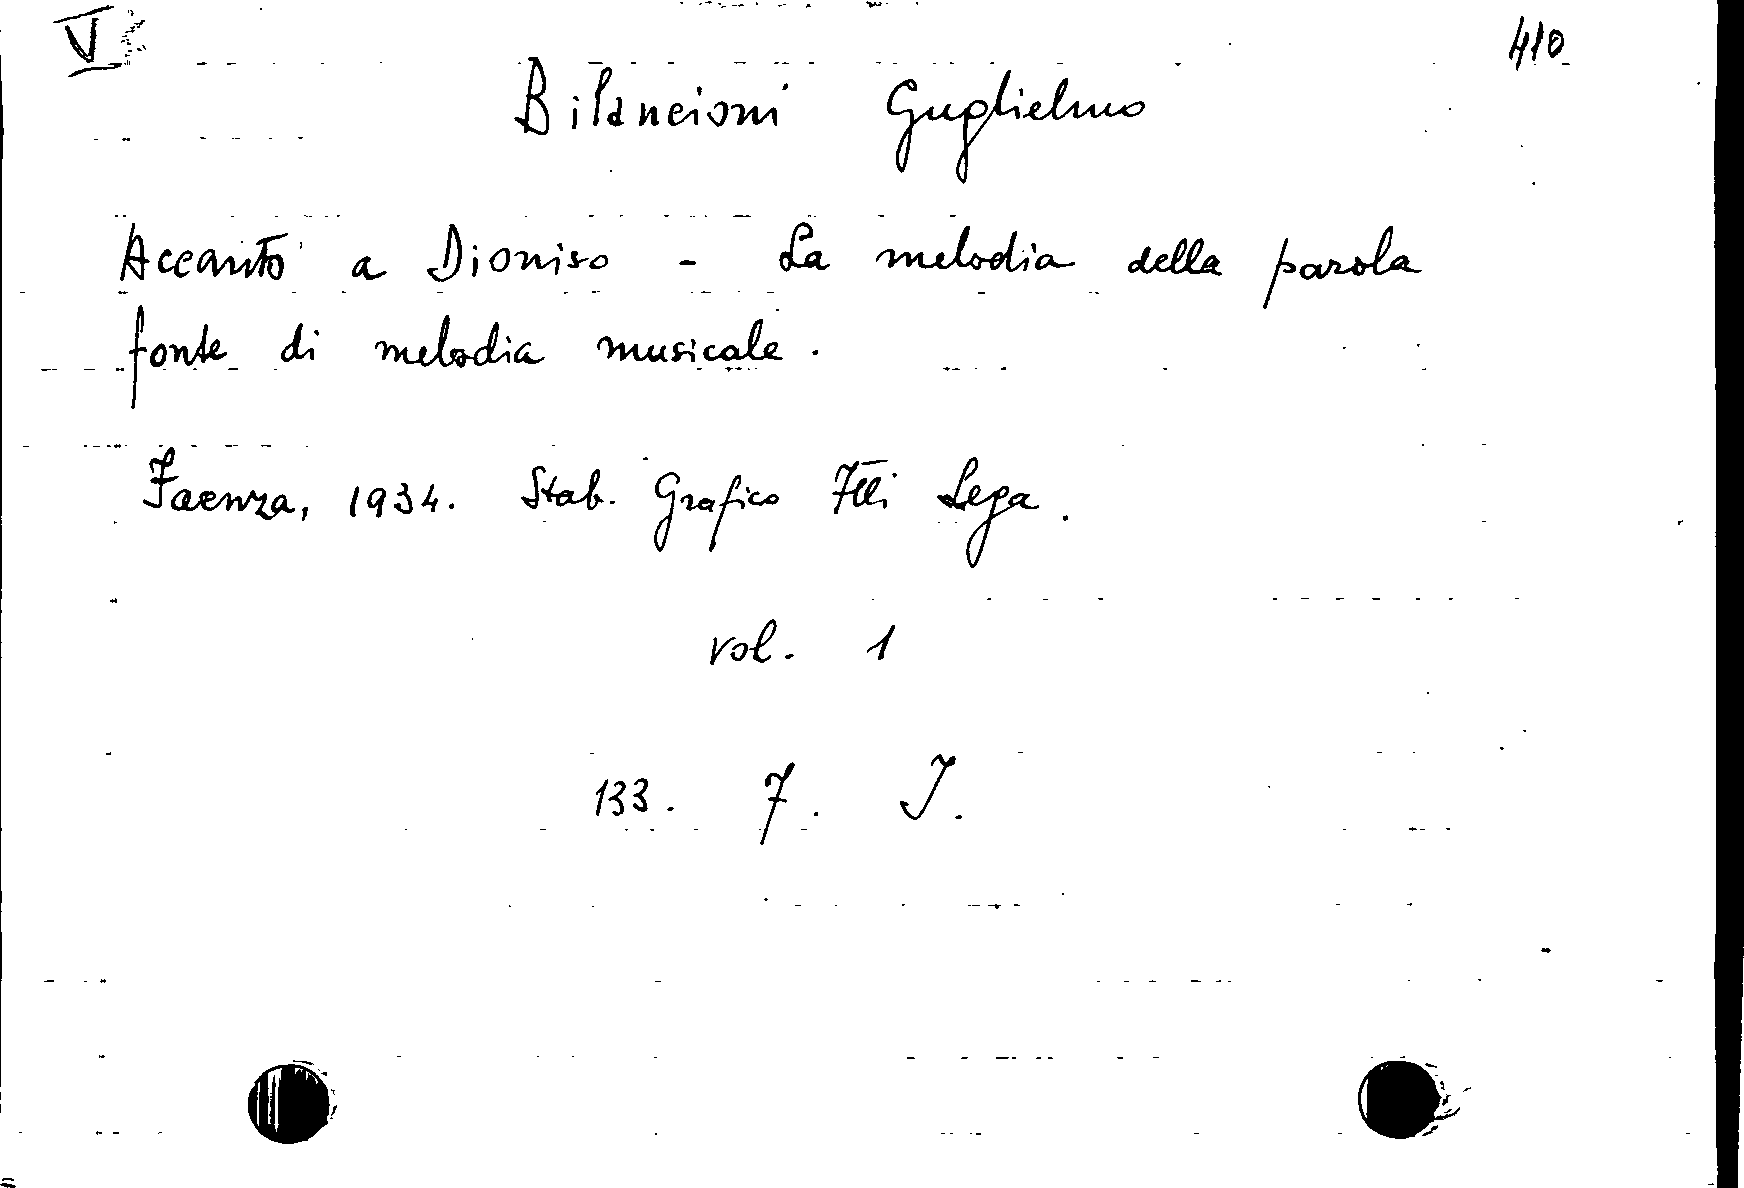 V 410
Bilancioni Guglielmo
Accanto a Dioniso - La melodia della parola
fonte di melodia musicale.
Faenza, 1934. Stab. Grafico Flli Lega.
vol. 1
133. 7. I.